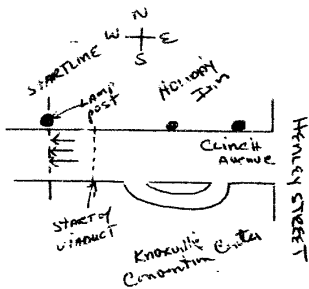 N
W E
S
STARTLINE
LAMP
POST
HOLIDAY
INN
CLINCH
AVENUE
HENLEY STREET
START OF
VIADUCT
KNOXVILLE
CONVENTION CENTER